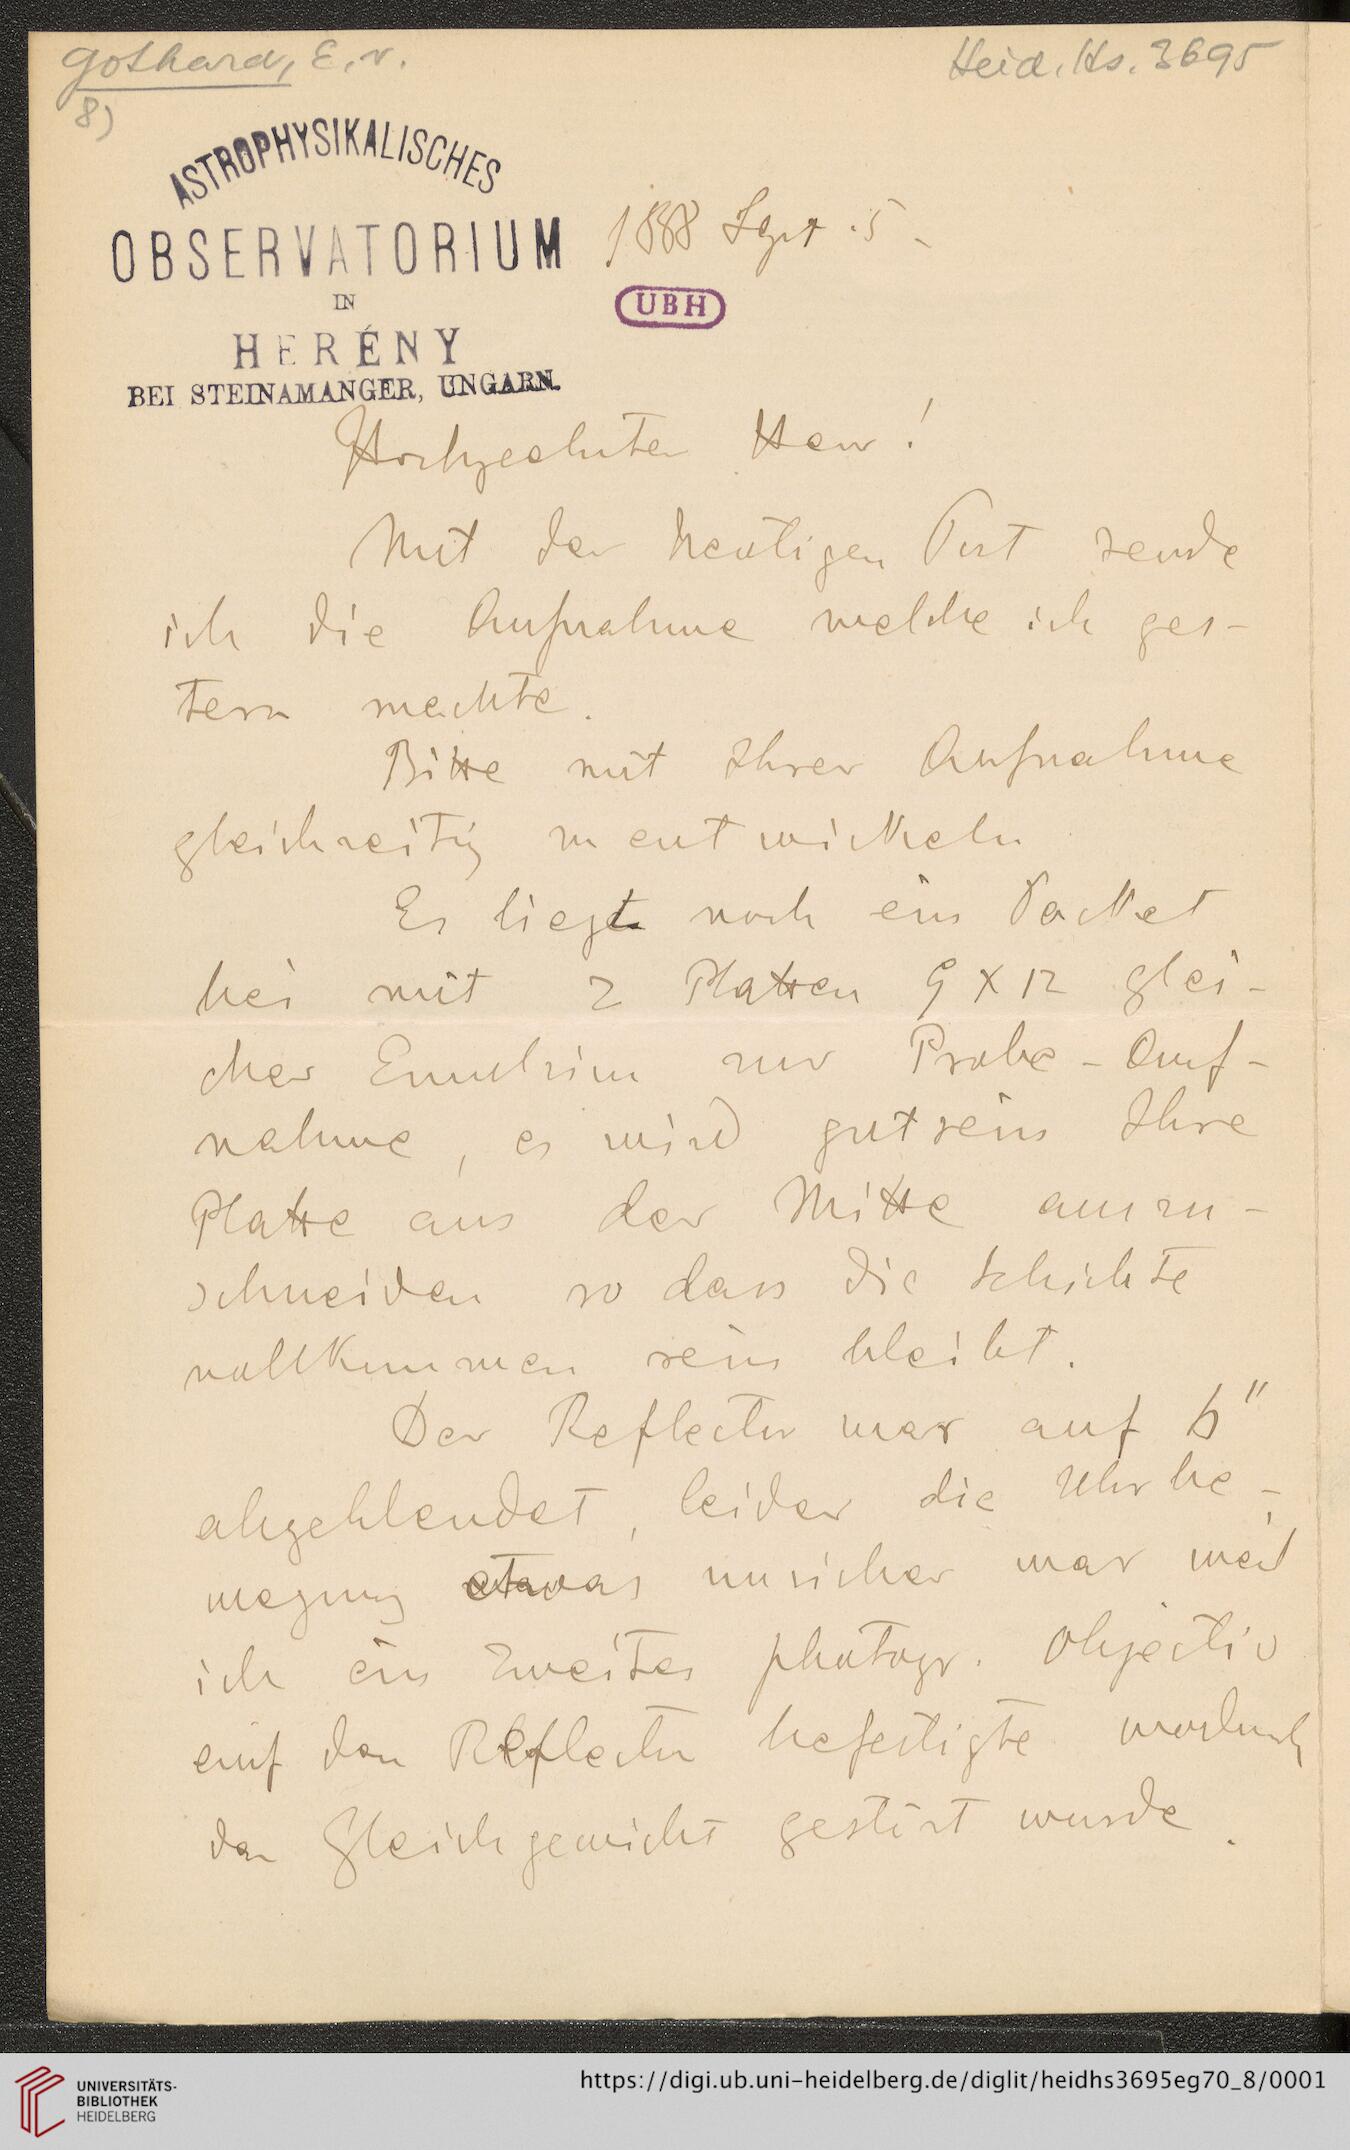 Gothard, E. v.
Heid. Hs. 3695
8)
ASTROPHYSIKALISCHES
OBSERVATORIUM
IN
HERÉNY
BEI STEINAMANGER, UNGARN.
1888 Sept. 5.
UBH
Hochgeehrter Herr!
Mit der heutigen Post sende
ich die Aufnahme welche ich ges-
tern machte.
Bitte mit Ihrer Aufnahme
gleichzeitig zu entwickeln
Es liegt noch ein Packet
bei mit 2 Platten 9 X 12 glei-
cher Emulsion zur Probe-Auf-
nahme, es wird gut sein Ihre
Platte aus der Mitte auszu-
schneiden so dass die Schichte
vollkommen rein bleibt.
Der Reflector war auf 6"
abgeblendet, leider die Uhrbe-
wegung etwas unsicher war weil
ich ein zweites photogr. Objectiv
auf den Reflector befestigte wodurch
das Gleichgewicht gestört wurde.
UNIVERSITÄTS-
BIBLIOTHEK
HEIDELBERG
https://digi.ub.uni-heidelberg.de/diglit/heidhs3695eg70_8/0001